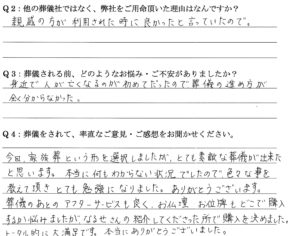 Q2:他の葬儀社ではなく、弊社をご用命頂いた理由はなんですか?
親戚の方が利用された時に良かったと言っていたので。
Q3:葬儀される前、どのようなお悩み・ご不安がありましたか?
身近で人が亡くなるのが初めてだったので葬儀の進め方が
全く分からなかった。
Q4:葬儀をされて、率直なご意見・ご感想をお聞かせください。
今回、家族葬という形を選択しましたが、とても素敵な葬儀が出来た
と思います。本当に何もわからない状況でしたので色々な事を
教えて頂きとても勉強になりました。ありがとうございます。
葬儀のあとのアフターサービスも良く、お仏壇 お位牌もどこで購入
するか悩みましたがなるせさんの紹介してくださった所で購入を決めました。
トータル的に大満足です。本当にありがとうございました。